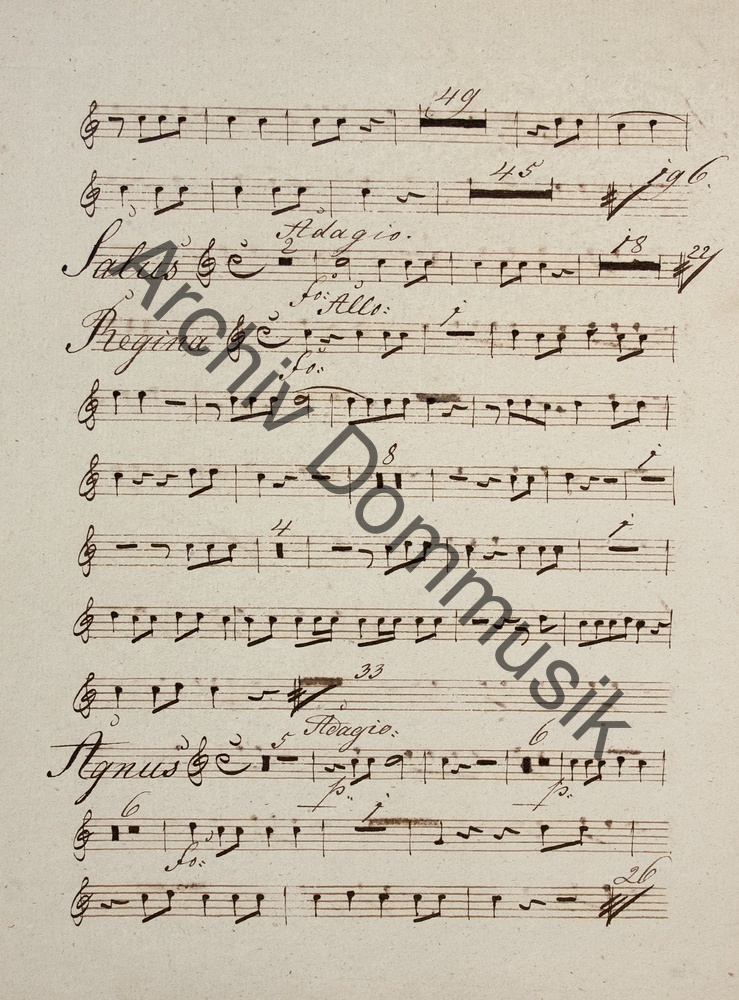 49
45 196.
Adagio.
Salus 2 18 22
fo: Allo:
Regina 1
fo:
8 1
4 1
33
Adagio:
Agnus 5 6
p: p:
6 1
fo:
26
Archiv Dommusik